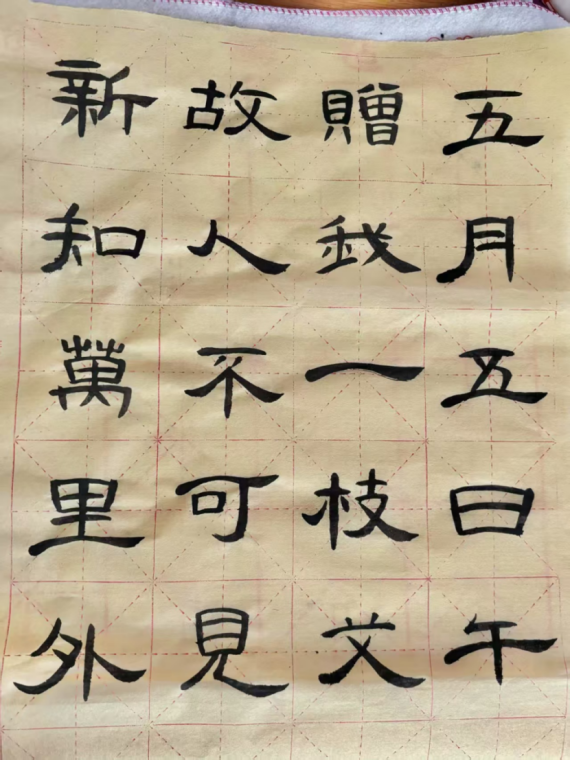 五月五日午
贈我一枝艾
故人不可見
新知萬里外